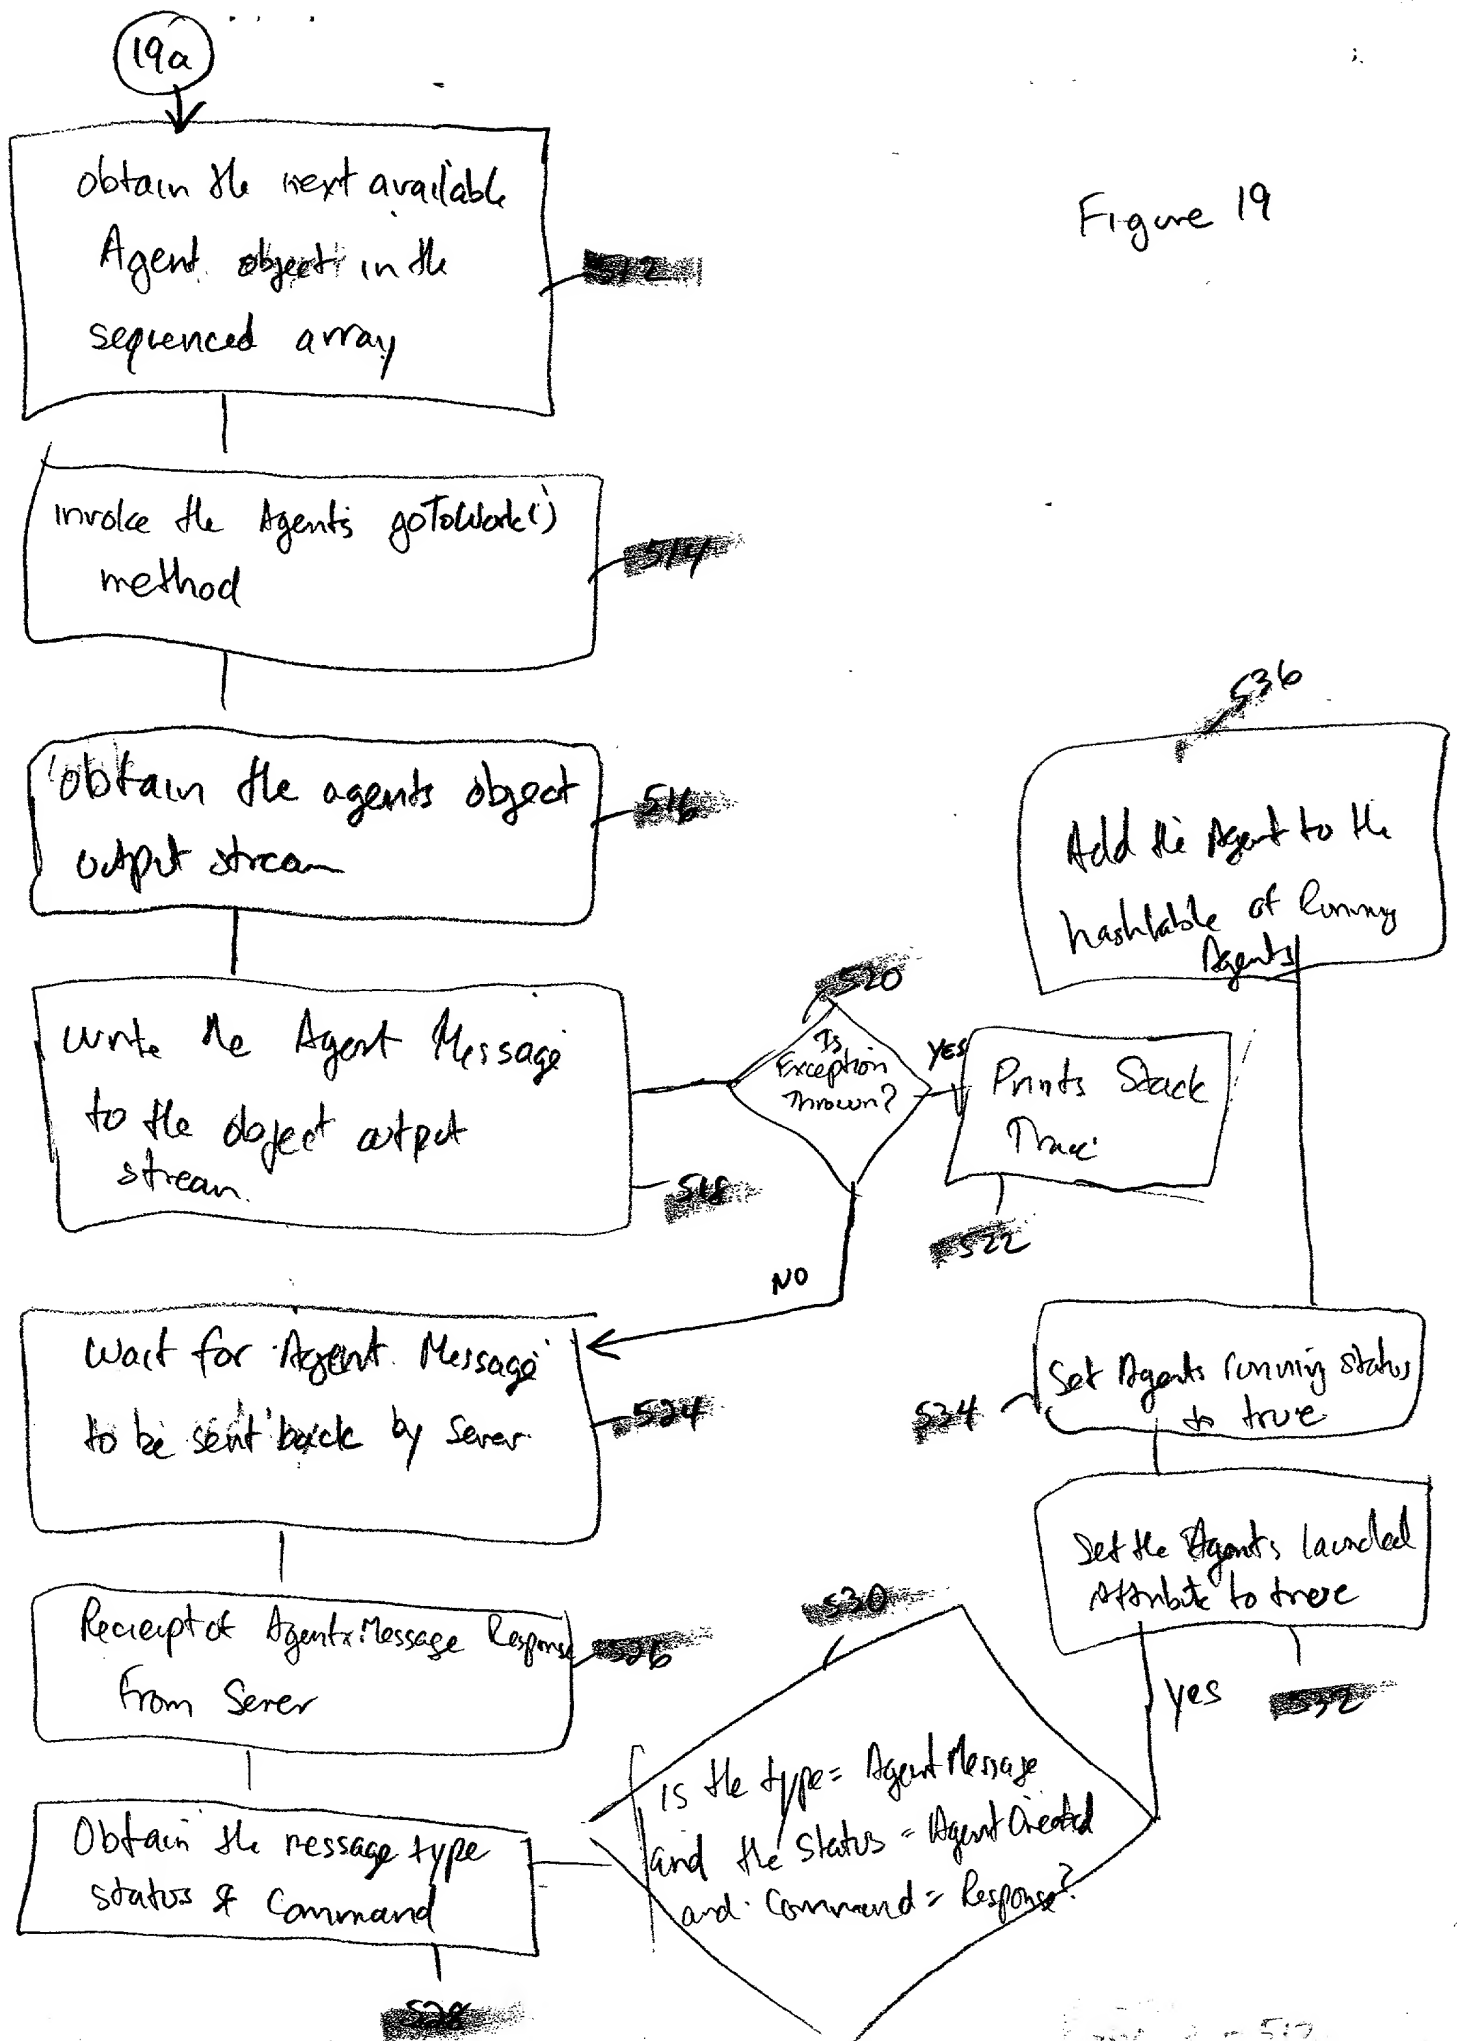 19a
Figure 19
obtain the next available
Agent object in the
sequenced array
512
invoke the Agents goToWork()
method
514
obtain the agents object
output stream
516
write the Agent Message
to the object output
stream.
518
520
Is
Exception
Thrown?
YES
Prints Stack
Trace
522
NO
Wait for Agent Message
to be sent back by Server
524
Reciept of Agent Message Response
From Server
526
Obtain the message type
status & Command
528
530
is the type = Agent Message
and the Status = Agent Created
and Command = Response?
yes
532
Set the Agents launched
Attribute to true
534
Set Agents running status
to true
536
Add the Agent to the
hashtable of Running
Agents